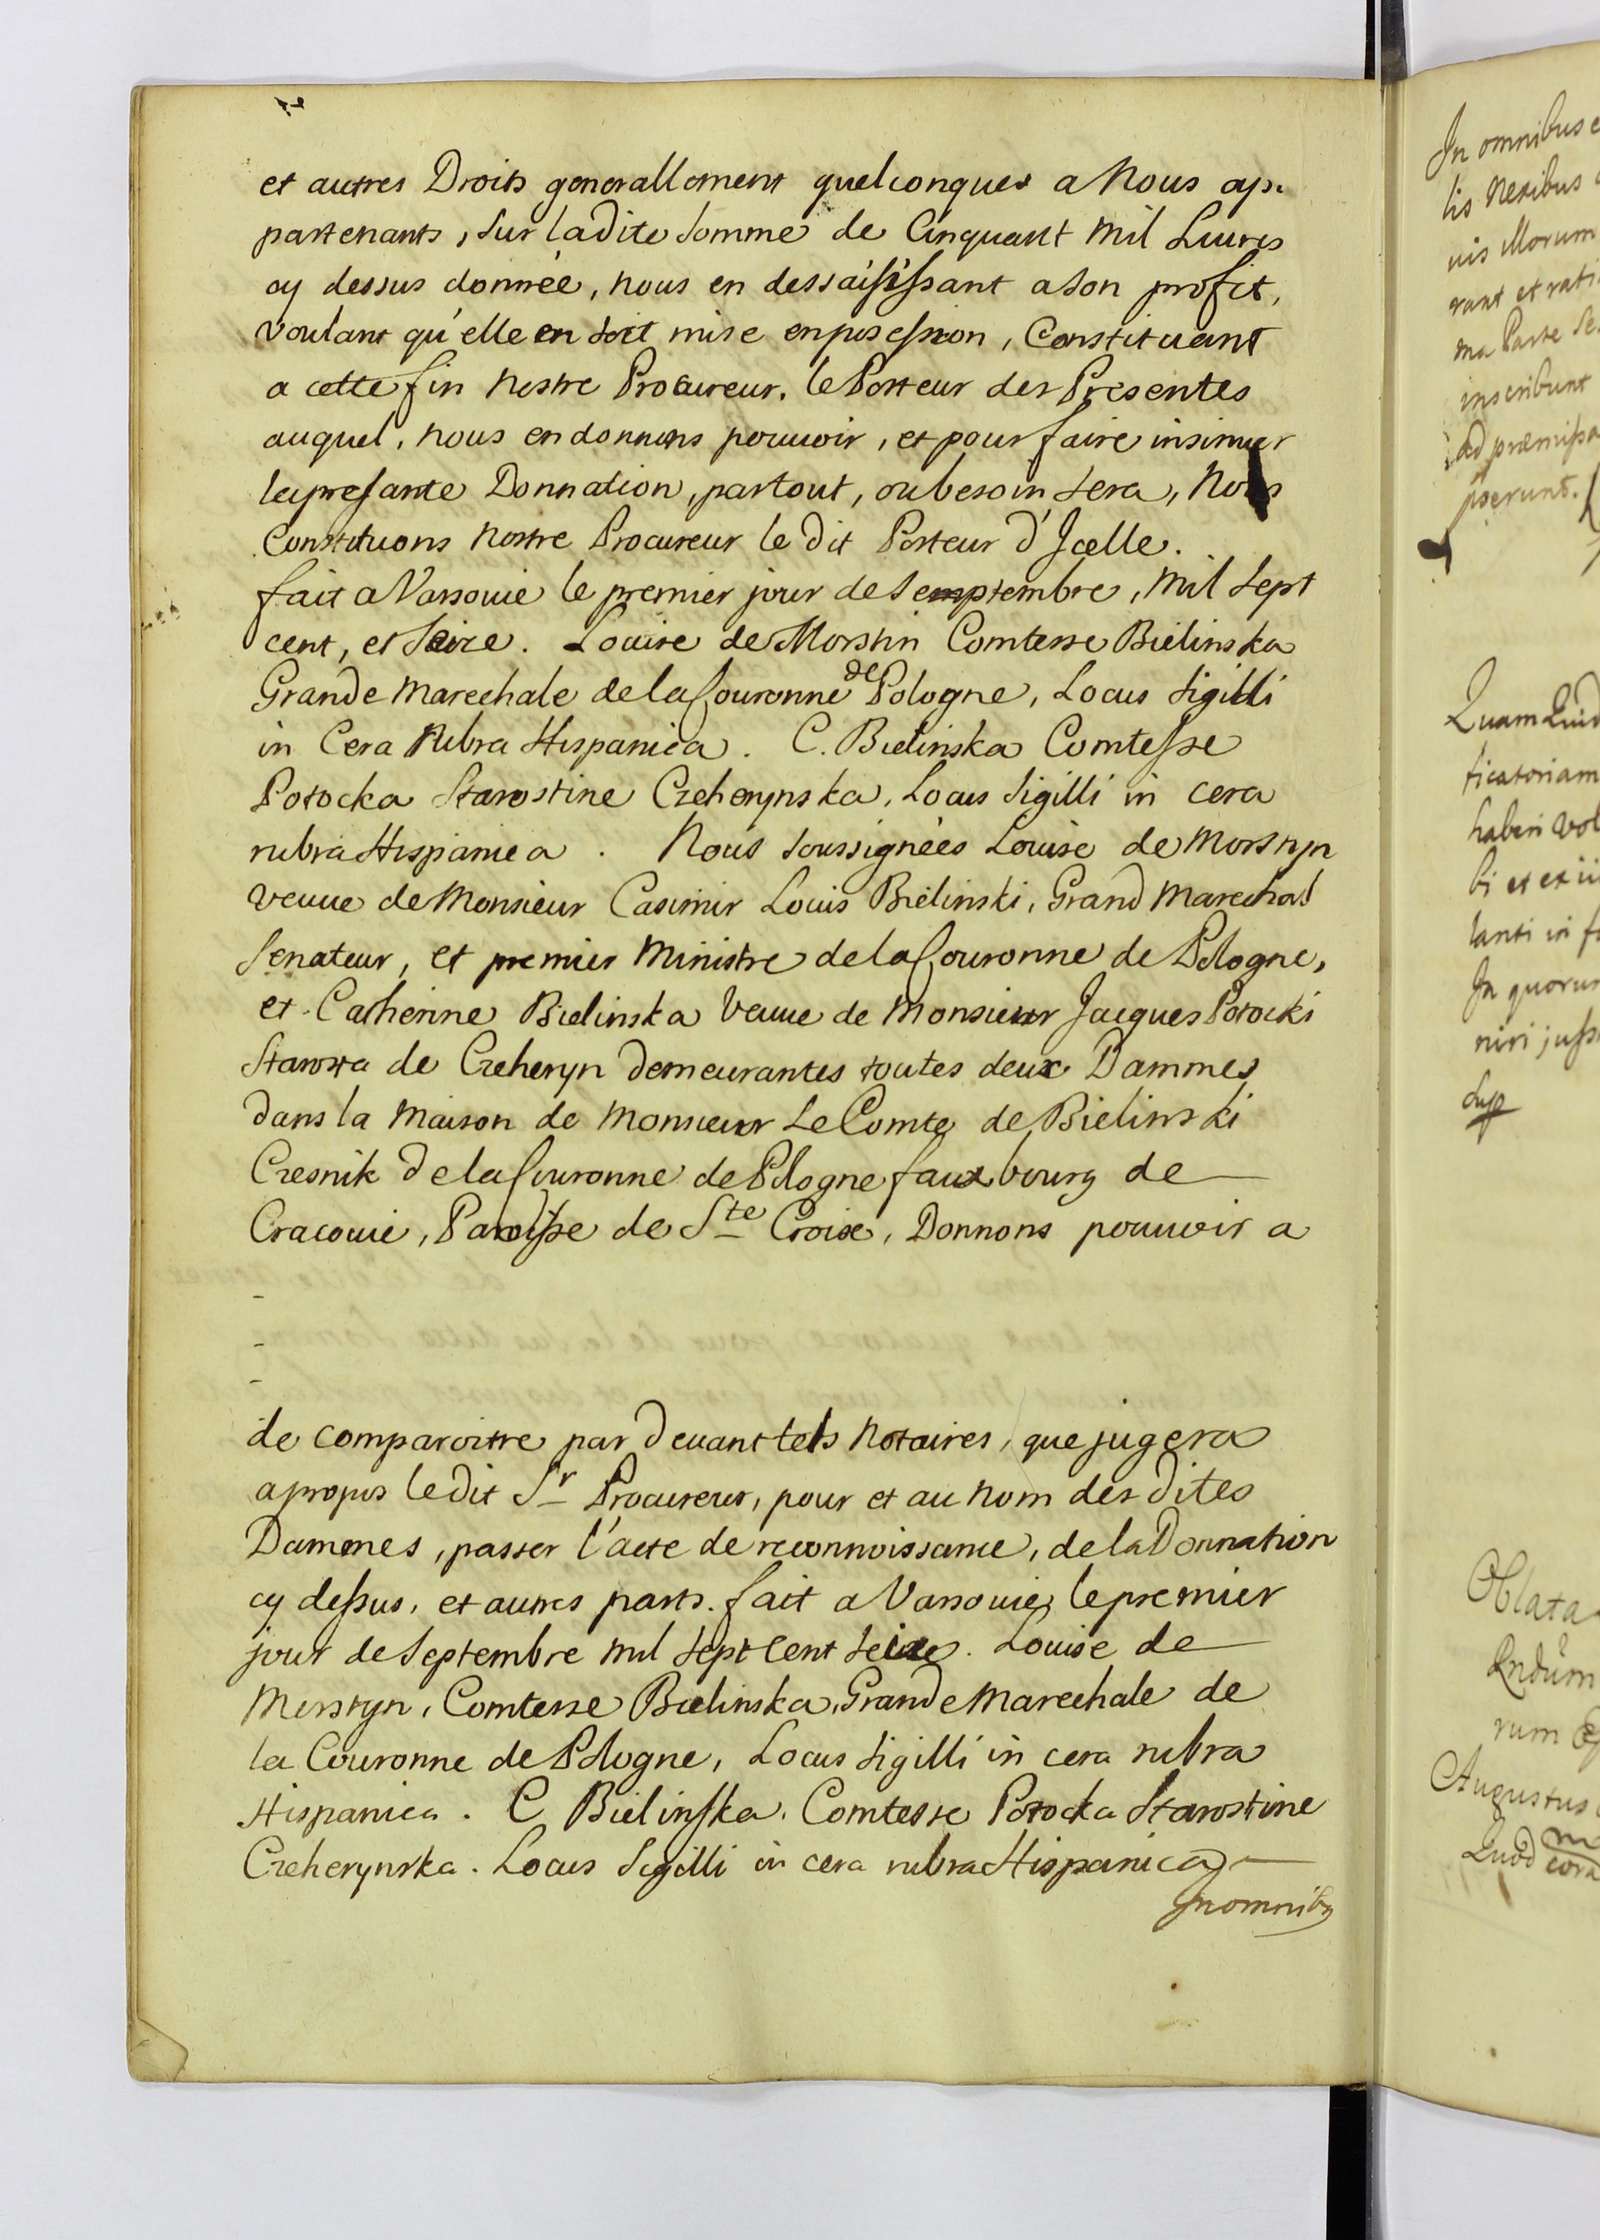 et autres Droits generallement quelconques a Nous ap:
partenants, sur ladite somme de Cinquant mil Livres
cy dessus donnée, nous en dessaisissant a son profit,
voulant qu'elle en soit mise en posession, Constituant
a cette fin Nostre Procureur, le Porteur des Presentes
auquel, nous en donnons pouuoir, et pour faire insinuer
la presante Donnation, partout, ou besoin sera, Nous
Constituons Nostre Procureur le dit Porteur d'Jcelle.
fait a Varsouie le premier jour de Semptembre, Mil Sept
cent, et Seize. Louise de Morstin Comtesse Bielinska
Grande Marechale de la Couronne de Pologne, Locus Sigilli
in Cera Rubra Hispanica. C. Bielinska Comtesse
Potocka Starostine Czeherynska, Locus Sigilli in cera
rubra Hispanica. Nous soussignées Louise de Morstyn
veuue de Monsieur Casimir Louis Bielinski, Grand Marechal
Senateur, et premier Ministre de la Couronne de Pologne,
et Catherine Bielinska veuue de Monsieur Jacques Potocki
Starosta de Czeheryn demeurantes toutes deux Dammes
dans la Maison de Monsieur Le Comte de Bielinski
Czesnik de la Couronne de Pologne faux bourg de
Cracouie, Paroisse de Ste Croix, Donnons pouuoir a
-
-
-
de comparoitre par deuant tels Notaires, que jugera
a propos ledit Sr Procureur, pour et au Nom desdites
Dammes, passer l'acte de reconnoissance, de la Donnation
cy dessus, et autres parts. fait a Varsouie, le premier
jour de Septembre mil Sept Cent Seize. Louise de
Morstyn, Comtesse Bielinska, Grande Marechale de
la Couronne de Pologne, Locus Sigilli in cera rubra
Hispanica. C Bielinska, Comtesse Potocka Starostine
Czeherynska. Locus Sigilli in cera rubra Hispanica
In omnib9
In omnibus
lis Nexibus
uis Illorum
rant et rati
ma Parte Se
inscribunt
ad præmissa
pserunt.
Quam Quid
ficatoriam
haberi vol
bi et ex
lanti in f
In quorum
niri jussi
Oblata
Qndum
rum
Augustus
Quod cora